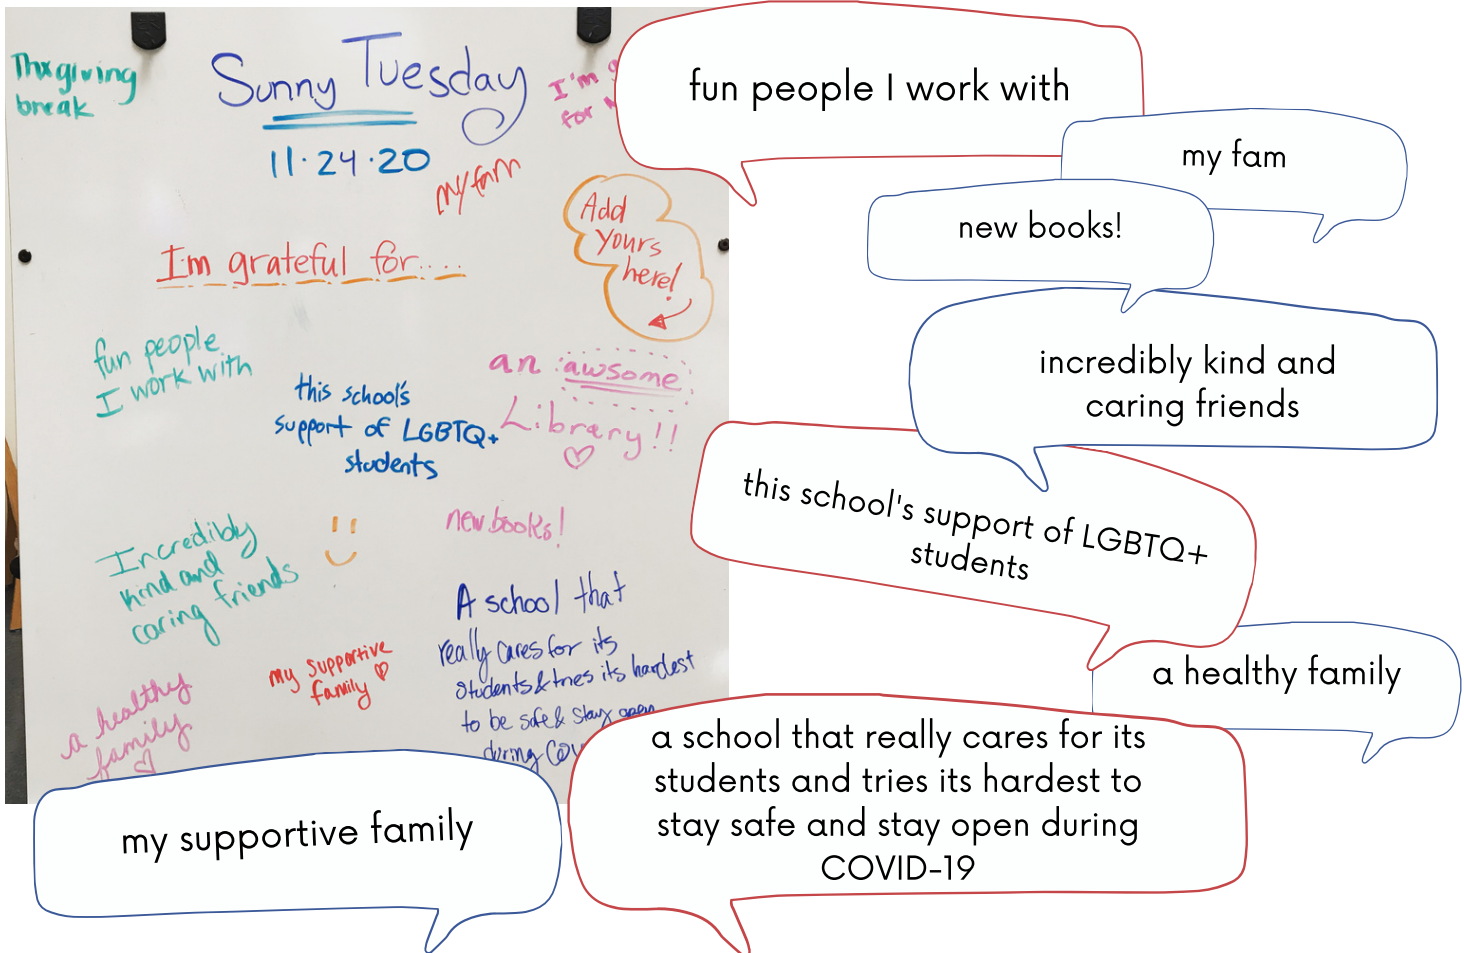 Thxgiving
break
Sunny Tuesday
11·24·20
I'm
for
my fam
Add
Yours
here!
I'm grateful for....
fun people
I work with
this school's
support of LGBTQ+
students
an awsome
Library!!
new books!
Incredibly
kind and
caring friends
my supportive
family
A school that
really cares for its
students & tries its hardest
to be safe & stay open
during
a healthy
family
fun people I work with
my fam
new books!
incredibly kind and
caring friends
this school's support of LGBTQ+
students
a healthy family
a school that really cares for its
students and tries its hardest to
stay safe and stay open during
COVID-19
my supportive family